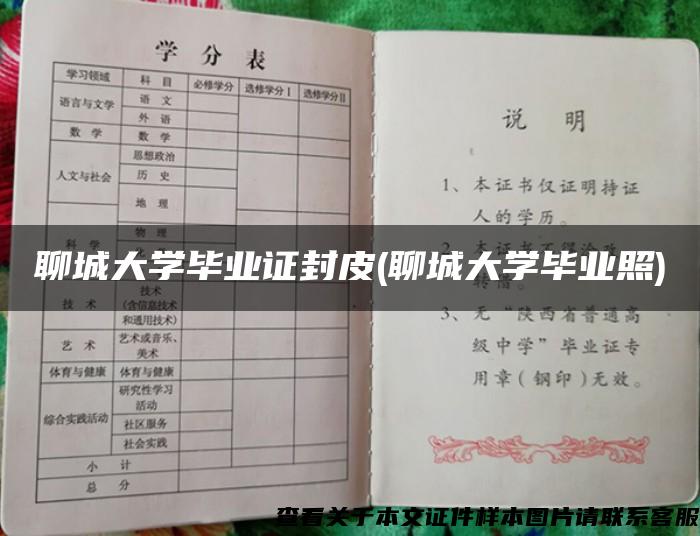 学 分 表
学习领域 科 目 必修学分 选修学分Ⅰ 选修学分Ⅱ
语言与文学 语 文
外 语
数 学 数 学
思想政治
人文与社会 历 史
地 理
科 学 物 理
技 术 技术
(含信息技术
和通用技术)
艺 术 艺术或音乐、
美术
体育与健康 体育与健康
综合实践活动 研究性学习
活动
社区服务
社会实践
小 计
总 分
说 明
1、本证书仅证明持证
人的学历。
2、本证书不得涂改、
转借。
3、无“陕西省普通高
级中学”毕业证专
用章(钢印)无效。
聊城大学毕业证封皮(聊城大学毕业照)
查看关于本文证件样本图片请联系客服